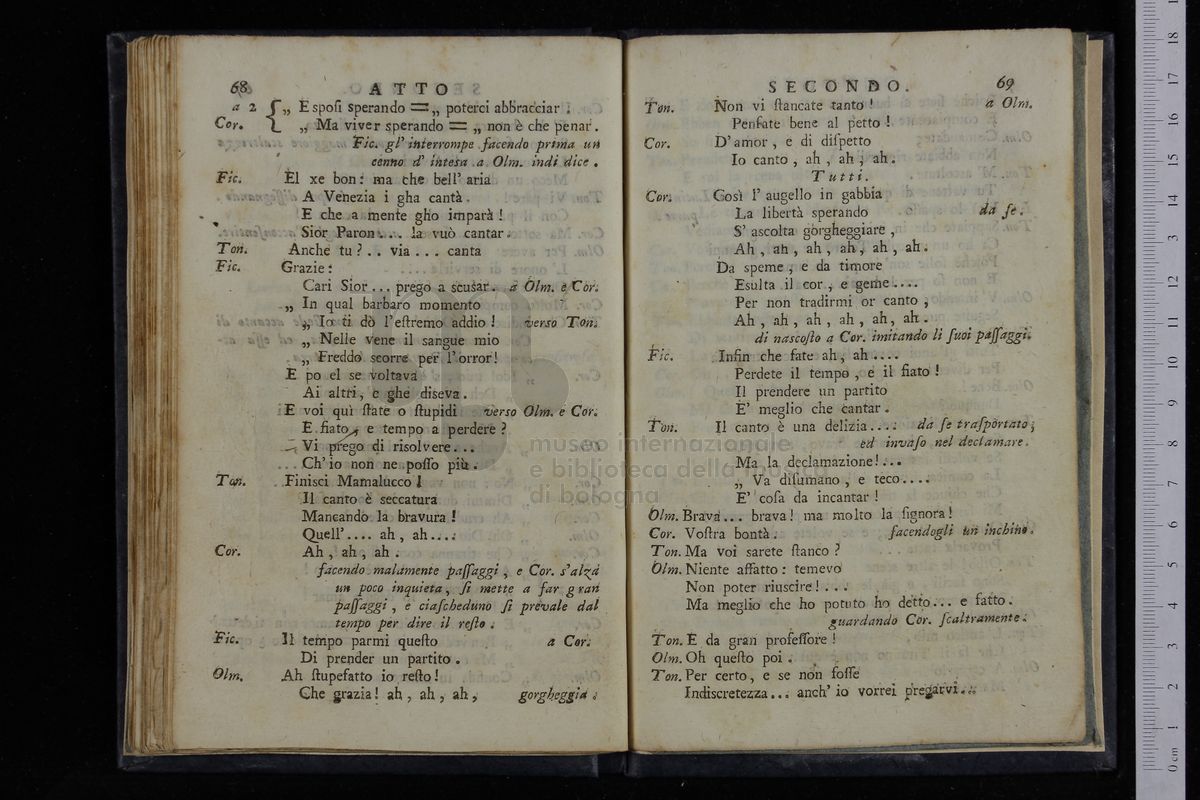 68 ATTO
a 2 { „ Esposi sperando = „ poterci abbracciar!
Cor. „ Ma viver sperando = „ non è che penar.
Fic. gl' interrompe facendo prima un
cenno d' intesa a Olm. indi dice.
Fic. El xe bon: ma che bell' aria
A Venezia i gha cantà.
E che a mente gho imparà!
Sior Paron.... la vuò cantar.
Ton. Anche tu?.. via... canta
Fic. Grazie:
Cari Sior... prego a scusar. a Olm. e Cor.
„ In qual barbaro momento
„ Io ti dò l'eſtremo addio! verso Ton.
„ Nelle vene il sangue mio
„ Freddo scorre per l'orror!
E po el se voltava
Ai altri, e ghe diseva.
E voi quì ſtate o ſtupidi verso Olm. e Cor.
E fiato, e tempo a perdere?
Vi prego di risolvere...
Ch' io non ne poſſo più.
Ton. Finisci Mamalucco!
Il canto è seccatura
Mancando la bravura!
Quell'.... ah, ah....
Cor. Ah, ah, ah.
facendo malamente paſſaggi, e Cor. s'alza
un poco inquieta, ſi mette a far gran
paſſaggi, e ciaſcheduno ſi prevale dal
tempo per dire il reſto.
Fic. Il tempo parmi queſto a Cor.
Di prender un partito.
Olm. Ah ſtupefatto io reſto!
Che grazia! ah, ah, ah, gorgheggia.
SECONDO. 69
Ton. Non vi ſtancate tanto! a Olm.
Penſate bene al petto!
Cor. D'amor, e di diſpetto
Io canto, ah, ah, ah.
Tutti.
Cor. Così l' augello in gabbia
La libertà sperando da ſe.
S' ascolta gorgheggiare,
Ah, ah, ah, ah, ah, ah.
Da speme, e da timore
Esulta il cor, e geme....
Per non tradirmi or canto,
Ah, ah, ah, ah, ah, ah.
di nascoſto a Cor. imitando li ſuoi paſſaggi.
Fic. Infin che fate ah, ah....
Perdete il tempo, e il fiato!
Il prendere un partito
E' meglio che cantar.
Ton. Il canto è una delizia.... da ſe traſportato,
ed invaſo nel declamare.
Ma la declamazione!...
„ Va diſumano, e teco....
E' coſa da incantar!
Olm. Brava... brava! ma molto la ſignora!
Cor. Voſtra bontà. facendogli un inchino.
Ton. Ma voi sarete ſtanco?
Olm. Niente affatto: temevo
Non poter riuscire!...
Ma meglio che ho potuto ho detto... e fatto.
guardando Cor. ſcaltramente.
Ton. E da gran profeſſore!
Olm. Oh queſto poi.
Ton. Per certo, e se non foſſe
Indiscretezza... anch' io vorrei pregarvi...
museo internazionale
e biblioteca della musica
di bologna
0 cm 1 2 3 4 5 6 7 8 9 10 11 12 13 14 15 16 17 18